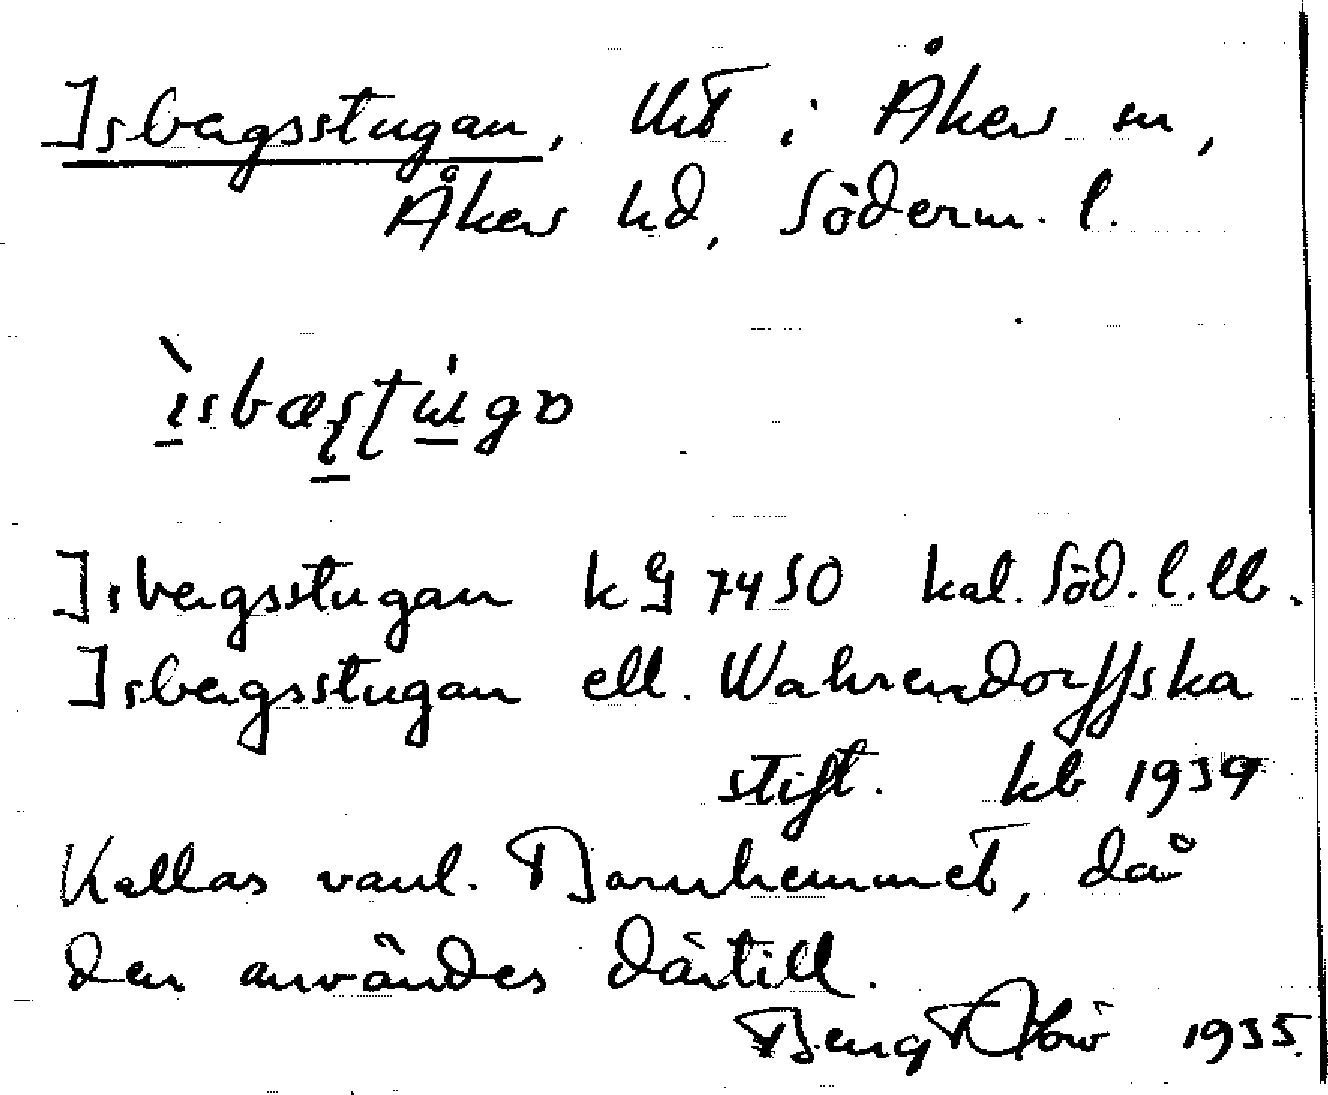 Isbergsstugan, tht i Åkers sn,
Åkers hd, Söderm. l.
Isbergsstugan k G 7450 kal. Söd. l. llb.
Isbergsstugan ell. Wahrendorffska
stift. kb 1939
Kallas vanl. Barnhemmet, då
den användes därtill.
Bengt 1935.